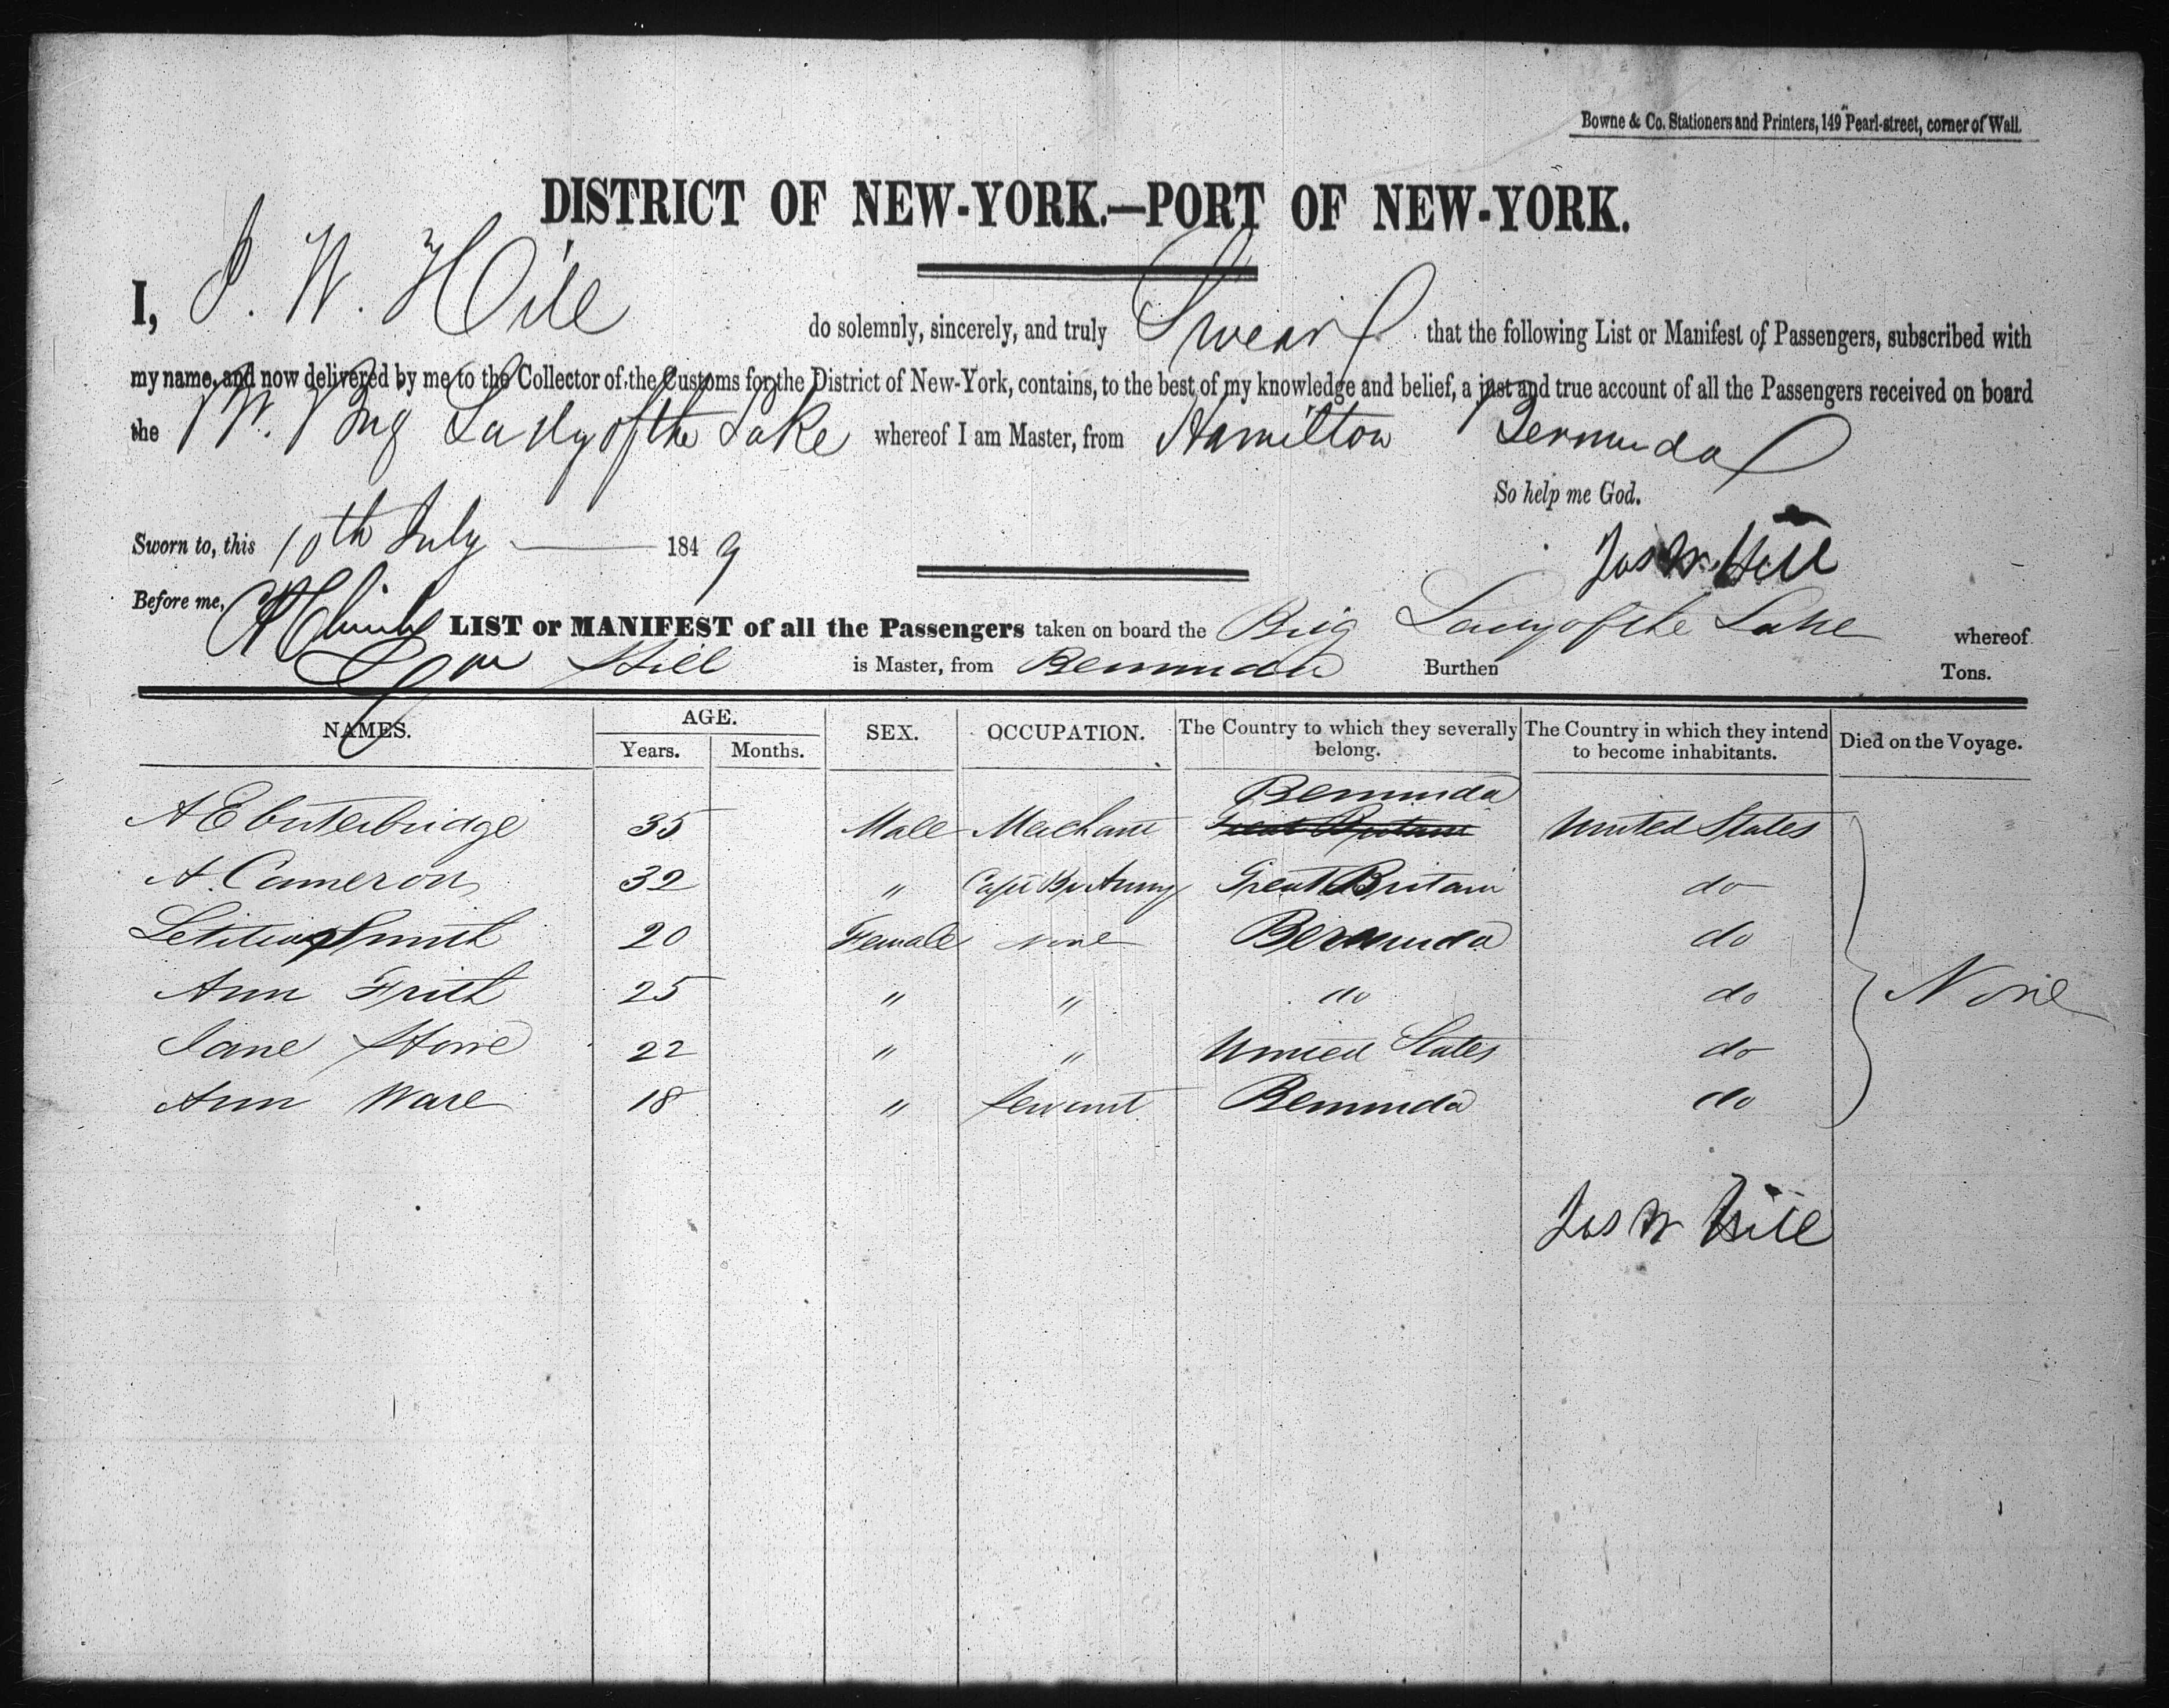 Bowne & Co. Stationers and Printers, 149 Pearl-street, corner of Wall.
DISTRICT OF NEW-YORK.—PORT OF NEW-YORK.
I, J. W. Hill do solemnly, sincerely, and truly Swear that the following List or Manifest of Passengers, subscribed with
my name, and now delivered by me to the Collector of the Customs for the District of New-York, contains, to the best of my knowledge and belief, a just and true account of all the Passengers received on board
the Br. Brig Lady of the Lake whereof I am Master, from Hamilton Bermuda
So help me God.
Sworn to, this 10th July 1849
Jas W. Hill
Before me,
LIST or MANIFEST of all the Passengers taken on board the Brig Lady of the Lake whereof
Hill is Master, from Bermuda Burthen Tons.
NAMES. AGE. Years. Months. SEX. OCCUPATION. The Country to which they severally belong. The Country in which they intend to become inhabitants. Died on the Voyage.
Bermuda
A E Outerbridge 35 Male Merchant Great Britain United States
A. Cameron 32 " Capt Br Army Great Britain do
Letitia Smith 20 Female none Bermuda do
Ann Frith 25 " " do do None
Jane Stowe 22 " " United States do
Ann Ware 18 " Servant Bermuda do
Jas W Hill